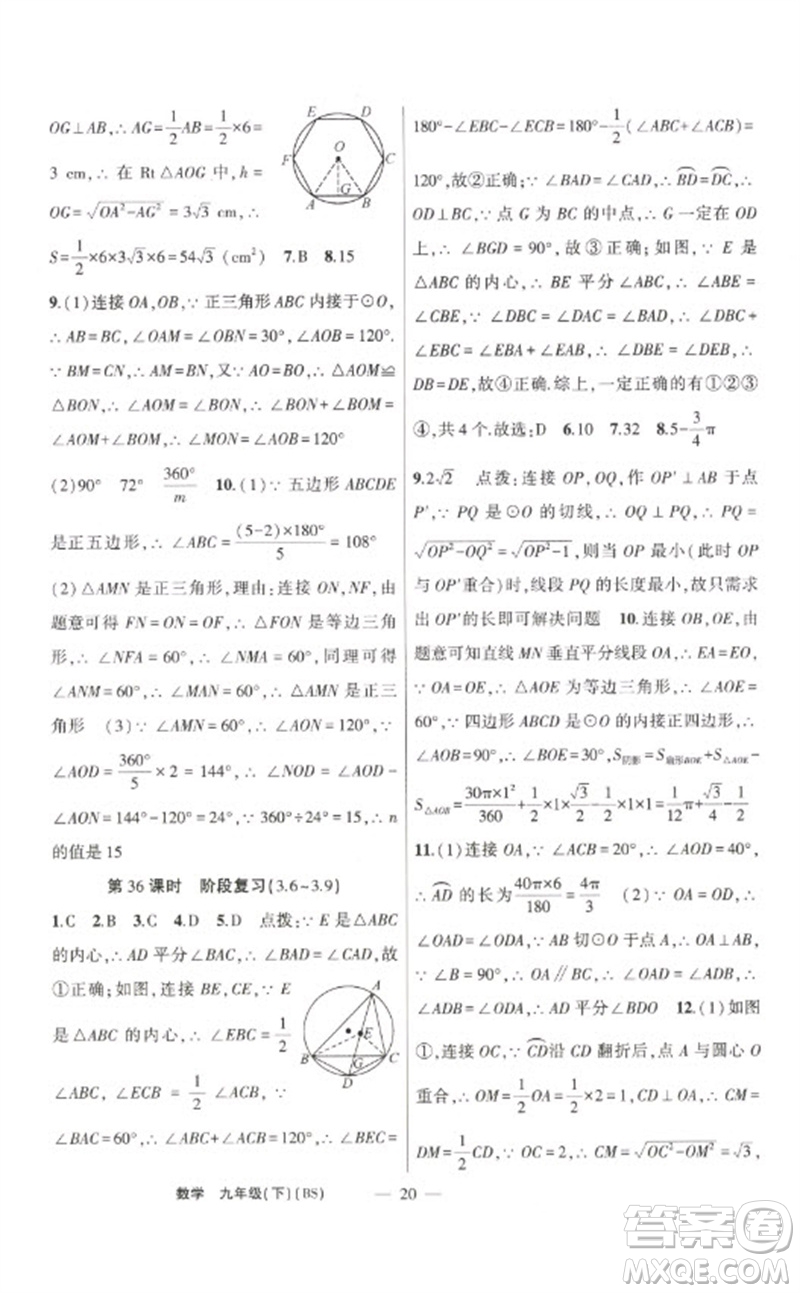 OG⊥AB,∴AG=1/2AB=1/2×6=
3 cm,∴在 Rt△AOG 中,h=
OG=√(OA²-AG²)=3√3 cm,∴
S=1/2×6×3√3×6=54√3(cm²) 7.B 8.15
E D
F O C
A G B
9.(1)连接 OA,OB,∵正三角形 ABC 内接于⊙O,
∴AB=BC,∠OAM=∠OBN=30°,∠AOB=120°.
∵BM=CN,∴AM=BN.又∵AO=BO,∴△AOM≌
△BON,∴∠AOM=∠BON,∴∠BON+∠BOM=
∠AOM+∠BOM,∴∠MON=∠AOB=120°
(2)90° 72° 360°/m 10.(1)∵五边形 ABCDE
是正五边形,∴∠ABC=(5-2)×180°/5=108°
(2)△AMN 是正三角形,理由:连接 ON,NF,由
题意可得 FN=ON=OF,∴△FON 是等边三角
形,∴∠NFA=60°,∴∠NMA=60°,同理可得
∠ANM=60°,∴∠MAN=60°,∴△AMN 是正三
角形 (3)∵∠AMN=60°,∴∠AON=120°,∵
∠AOD=360°/5×2=144°,∴∠NOD=∠AOD-
∠AON=144°-120°=24°,∵360°÷24°=15,∴n
的值是 15
第 36 课时 阶段复习(3.6~3.9)
1.C 2.B 3.C 4.D 5.D 点拨:∵E 是△ABC
的内心,∴AD 平分∠BAC,∴∠BAD=∠CAD,故
①正确;如图,连接 BE,CE,∵E
是△ABC 的内心,∴∠EBC=1/2
∠ABC,∠ECB=1/2∠ACB,∵
∠BAC=60°,∴∠ABC+∠ACB=120°,∴∠BEC=
A
E
B G C
D
180°-∠EBC-∠ECB=180°-1/2(∠ABC+∠ACB)=
120°,故②正确;∵∠BAD=∠CAD,∴BD⌒=DC⌒,∴
OD⊥BC,∵点 G 为 BC 的中点,∴G 一定在 OD
上,∴∠BGD=90°,故③正确;如图,∵E 是
△ABC 的内心,∴BE 平分∠ABC,∴∠ABE=
∠CBE,∵∠DBC=∠DAC=∠BAD,∴∠DBC+
∠CBE=∠EBA+∠EAB,∴∠DBE=∠DEB,∴
DB=DE,故④正确.综上,一定正确的有①②③
④,共 4 个.故选:D 6.10 7.32 8.5-3/4π
9.2√2 点拨:连接 OP,OQ,作 OP'⊥AB 于点
P',∵PQ 是⊙O 的切线,∴OQ⊥PQ,∴PQ=
√(OP²-OQ²)=√(OP²-1),则当 OP 最小(此时 OP
与 OP'重合)时,线段 PQ 的长度最小,故只需求
出 OP'的长即可解决问题 10.连接 OB,OE,由
题意可知直线 MN 垂直平分线段 OA,∴EA=EO,
∵OA=OE,∴△AOE 为等边三角形,∴∠AOE=
60°,∵四边形 ABCD 是⊙O 的内接正四边形,∴
∠AOB=90°,∴∠BOE=30°,∵S阴影=S扇形BOE+S△AOE-
S△AOB=30π×1²/360+1/2×1×√3/2-1/2×1×1=1/12π+√3/4-1/2
11.(1)连接 OA,∵∠ACB=20°,∴∠AOD=40°,
∴AD⌒的长为40π×6/180=4π/3 (2)∵OA=OD,∴
∠OAD=∠ODA,∵AB 切⊙O 于点 A,∴∠OAB=
90°,∵∠B=90°,∴OA∥BD,∴∠OAD=∠ADB,∴
∠ADB=∠ODA,∴AD 平分∠BDO 12.(1)如图
①,连接 OC,∵CD⌒沿 CD 翻折后,点 A 与圆心 O
重合,∴OM=1/2OA=1/2×2=1,CD⊥OA,∴CM=
DM=1/2CD,∵OC=2,∴CM=√(OC²-OM²)=√3,
数学 九年级(下)(BS) — 20 —
答案圈
MXQE.COM